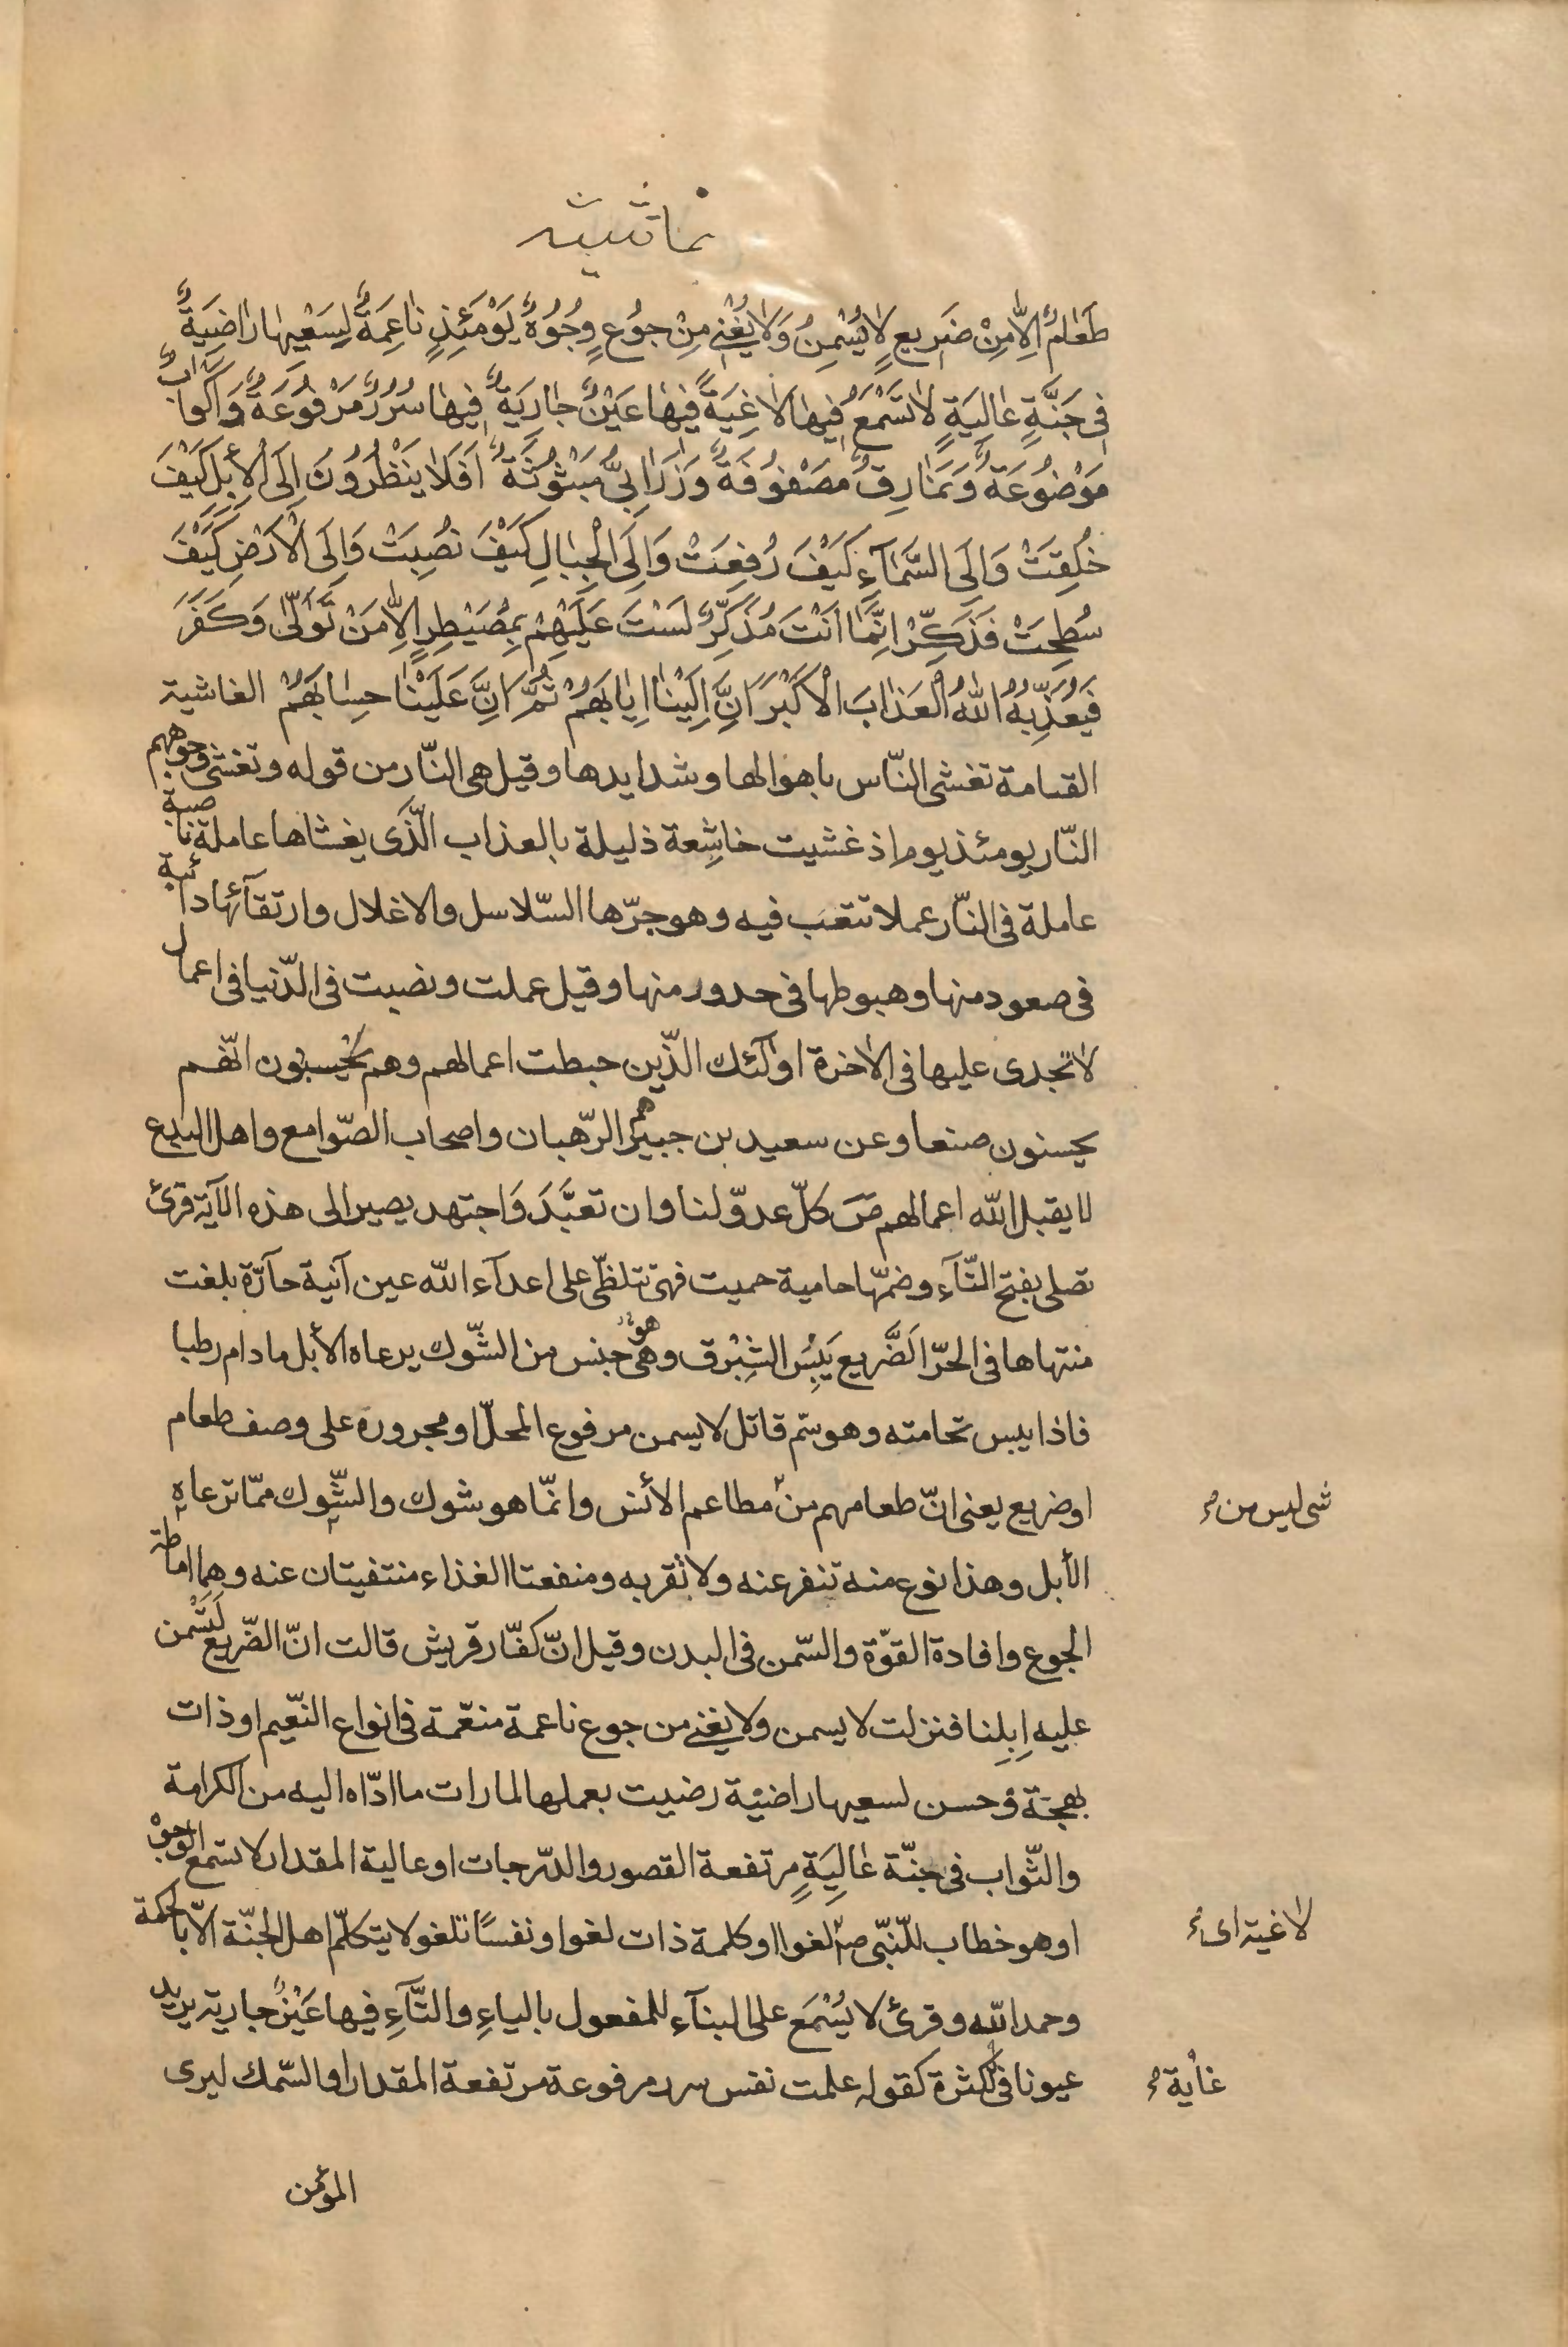 طَعٰامٌ اِلّٰا مِنْ ضَرِيعٍ لٰا يُسْمِنُ وَلٰا يُغْنِي مِنْ جُوعٍ وُجُوهٌ يَوْمَئِذٍ نٰاعِمَةٌ لِسَعْيِهٰا رٰاضِيَةٌ
فِي جَنَّةٍ عٰالِيَةٍ لٰا تَسْمَعُ فِيهٰا لٰاغِيَةً فِيهٰا عَيْنٌ جٰارِيَةٌ فِيهٰا سُرُرٌ مَرْفُوعَةٌ وَاَكْوٰابٌ
مَوْضُوعَةٌ وَنَمٰارِقُ مَصْفُوفَةٌ وَزَرٰابِيُّ مَبْثُوثَةٌ اَفَلٰا يَنْظُرُونَ اِلَى الْأِبِلِ كَيْفَ
خُلِقَتْ وَاِلَى السَّمٰآءِ كَيْفَ رُفِعَتْ وَاِلَى الْجِبٰالِ كَيْفَ نُصِبَتْ وَاِلَى الْاَرْضِ كَيْفَ
سُطِحَتْ فَذَكِّرْ اِنَّمٰا اَنْتَ مُذَكِّرٌ لَسْتَ عَلَيْهِمْ بِمُصَيْطِرٍ اِلّٰا مَنْ تَوَلّٰى وَكَفَرَ
فَيُعَذِّبُهُ اللّٰهُ الْعَذٰابَ الْاَكْبَرَ اِنَّ اِلَيْنٰا اِيٰابَهُمْ ثُمَّ اِنَّ عَلَيْنٰا حِسٰابَهُمْ الغاشية
القيامة تغشى النّاس باهوالها وشدايدها وقيل هى النّار من قوله وتغشى وجوههم
النّار يومئذ يوم اذ غشيت خاشِعة ذليلة بالعذاب الّذى يغشاها عاملة ناصبة
عاملة فى النّار عملا تتعب فيه وهو جرّها السّلاسل والاغلال وارتقآئها دائبة
فى صعود منها وهبوطها فى حدور منها وقيل عملت ونصبت فى الدّنيا فى اعمال
لا تجدى عليها فى الاخرة اولٰئك الّذين حبطت اعمالهم وهم يحسبون انّهم
يحسنون صنعا وعن سعيد بن جبير هم الرّهبان واصحاب الصّوامع واهل البدع
لا يقبل الله اعمالهم ص كلّ عدوّ لنا وان تعبَّدَ وَاجتهد يصير الى هذه الآية قرئ
تصلى بفتح التّآء وضمّها حامية حميت فهى تتلظّى على اعدآء الله عين آنية حآرّة بلغت
منتهاها فى الحرّ الَضَّريع يَبِيُس الشِبْرق وهى هو جنس من الشّوك يرعاه الأبل مادام رطبا
فاذا يبس تحامته وهو سمّ قاتل لا يسمن مرفوع المحلّ او مجروره على وصف طعام
او ضريع يعنى انّ طعامهم من مطاعم الأنس وانّما هو شوك والشّوك ممّا ترعاه
شى ليس من
الأبل وهذا نوع منه تنفر عنه ولا تقربه ومنفعتا الغذاء منتفيتان عنه وهما اماطة
الجوع وافادة القوّة والسّمن فى البدن وقيل انّ كفّار قريش قالت انّ الضّريع لَتَسْمن
عليه اِبِلنا فنزلت لا يسمن ولا يغنى من جوع ناعمة منعّمة فى انواع النّعيم او ذات
بهجة وحسن لسعيها راضية رضيت بعملها لما رات ما ادّاه اليه من الكرامة
والثّواب فى جنّة عٰالِيَةٍ مرتفعة القصور والدّرجات او عالية المقدار لا تسمع الوجوه
او هو خطاب للنّبّى ص لغوا او كلمة ذات لغو او نفسًا تلغو لا يتكلّم اهل الجنّة الّا بالحكمة
لاغية اى
وحمد الله وقرئ لا يُسْمَع على البنآء للمفعول بالياءِ والتّآءِ فيها عَيْنٌ جارية يريد
عيونا فى الكثرة كقوله علمت نفس سرر مرفوعة مرتفعة المقدار او السّمك ليرى
غاية
المؤمن